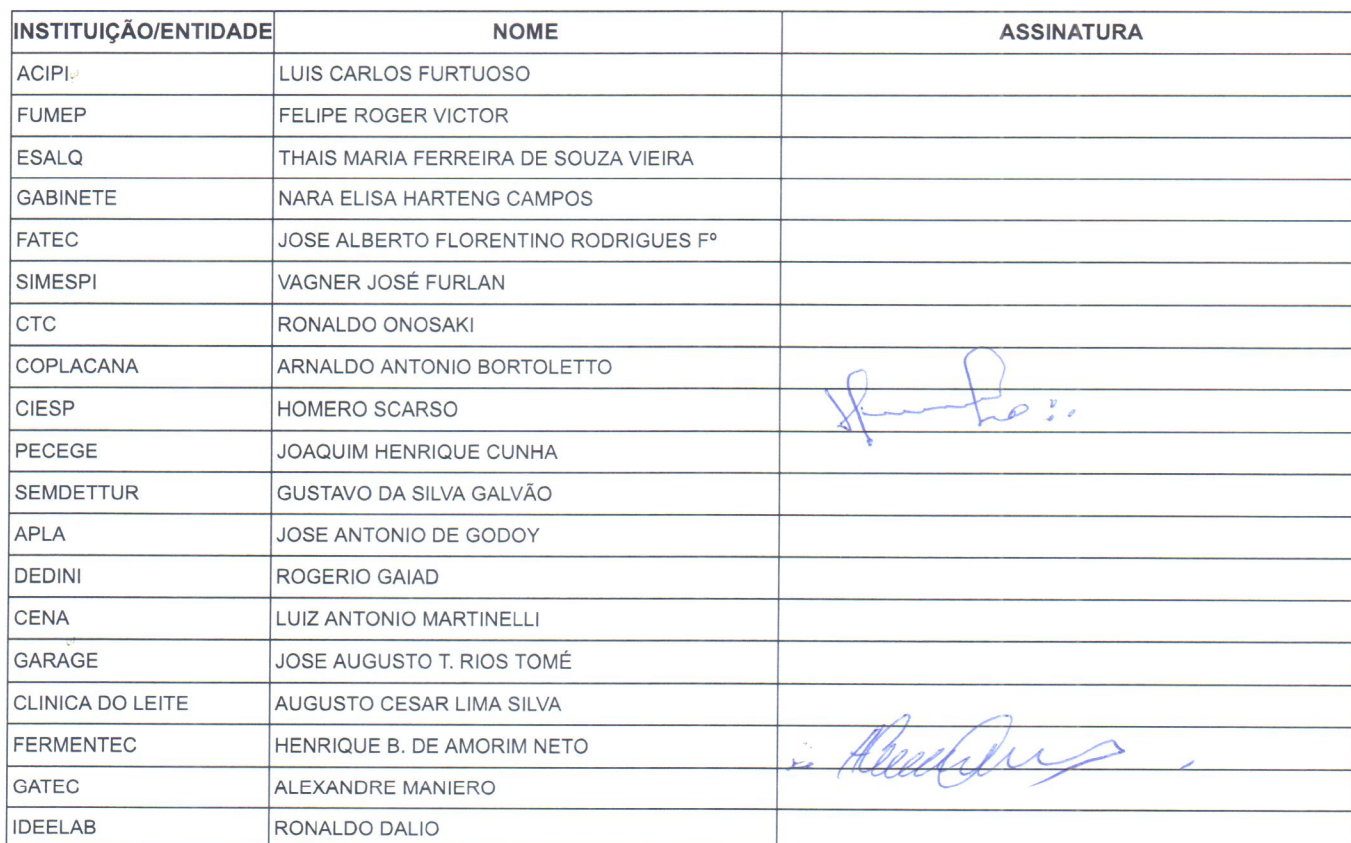 INSTITUIÇÃO/ENTIDADE NOME ASSINATURA
ACIPI LUIS CARLOS FURTUOSO
FUMEP FELIPE ROGER VICTOR
ESALQ THAIS MARIA FERREIRA DE SOUZA VIEIRA
GABINETE NARA ELISA HARTENG CAMPOS
FATEC JOSE ALBERTO FLORENTINO RODRIGUES Fº
SIMESPI VAGNER JOSÉ FURLAN
CTC RONALDO ONOSAKI
COPLACANA ARNALDO ANTONIO BORTOLETTO
CIESP HOMERO SCARSO
PECEGE JOAQUIM HENRIQUE CUNHA
SEMDETTUR GUSTAVO DA SILVA GALVÃO
APLA JOSE ANTONIO DE GODOY
DEDINI ROGERIO GAIAD
CENA LUIZ ANTONIO MARTINELLI
GARAGE JOSE AUGUSTO T. RIOS TOMÉ
CLINICA DO LEITE AUGUSTO CESAR LIMA SILVA
FERMENTEC HENRIQUE B. DE AMORIM NETO
GATEC ALEXANDRE MANIERO
IDEELAB RONALDO DALIO